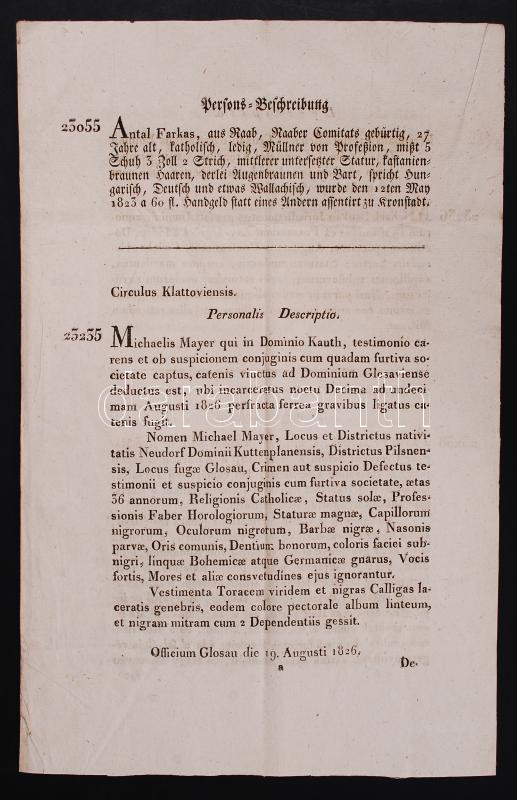 Persons-Beschreibung
23055 Antal Farkas, aus Raab, Raaber Comitats gebürtig, 27
Jahre alt, katholisch, ledig, Müllner von Profeßion, mißt 5
Schuh 3 Zoll 2 Strich, mittlerer untersetzter Statur, kastanien-
braunen Haaren, derlei Augenbraunen und Bart, spricht Hun-
garisch, Deutsch und etwas Wallachisch, wurde den 12ten May
1823 a 60 fl. Handgeld statt eines Andern assentirt zu Kronstadt.
Circulus Klattoviensis.
Personalis Descriptio.
23235 Michaelis Mayer qui in Dominio Kauth, testimonio ca-
rens et ob suspicionem conjuginis cum quadam furtiva so-
cietate captus, catenis vinctus ad Dominium Glosaviense
deductus est, ubi incarceratus noctu Decima ad undeci
mam Augusti 1826 perfracta ferrea gravibus ligatus ca-
tenis fugit.
Nomen Michael Mayer, Locus et Districtus nativi-
tatis Neudorf Dominii Kuttenplanensis, Districtus Pilsnen-
sis, Locus fugæ Glosau, Crimen aut suspicio Defectus te-
stimonii et suspicio conjuginis cum furtiva societate, ætas
36 annorum, Religionis Catholicæ, Status solæ, Profes-
sionis Faber Horologiorum, Staturæ magnæ, Capillorum
nigrorum, Oculorum nigrorum, Barbæ nigræ, Nasonis
parvæ, Oris comunis, Dentium bonorum, coloris faciei sub-
nigri, linquæ Bohemicæ atque Germanicæ gnarus, Vocis
fortis, Mores et aliæ consvetudines ejus ignorantur.
Vestimenta Toracem viridem et nigras Calligas la-
ceratis genebris, eodem colore pectorale album linteum,
et nigram mitram cum 2 Dependentiis gessit.
Officium Glosau die 19. Augusti 1826.
a
De-
darabanth.com